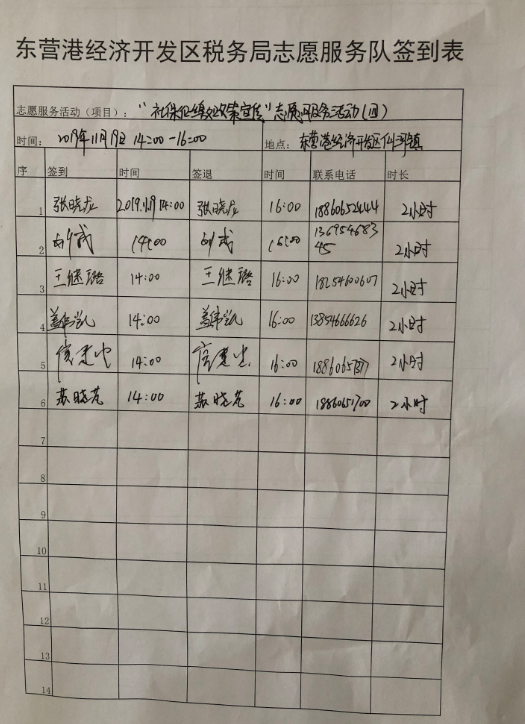 东营港经济开发区税务局志愿服务队签到表
志愿服务活动（项目）：“社保征缴政策宣传”志愿服务活动(四)
时间： 2019年11月19日 14:00-16:00 地点： 东营港经济开发区仙河镇
序 签到 时间 签退 时间 联系电话 时长
1 张晓龙 2019.11.19 14:00 张晓龙 16:00 18860652444 2小时
2 14:00 16:00 13695468345 2小时
3 王继璐 14:00 王继璐 16:00 18254600607 2小时
4 14:00 16:00 13854666626 2小时
5 14:00 16:00 2小时
6 苏晓芫 14:00 苏晓芫 16:00 18860651700 2小时
7
8
9
10
11
12
13
14